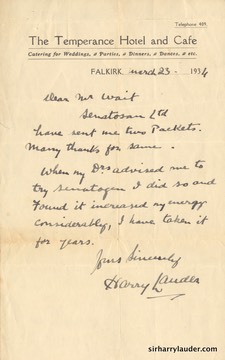 Telephone 489.
The Temperance Hotel and Cafe
Catering for Weddings, Parties, Dinners, Dances, etc.
FALKIRK, March 23 1934
Dear Mr Wait
Senatosan Ltd
have sent me two Packets.
Many thanks for same.
When my Drs advised me to
try senatogen I did so and
Found it increased my energy
considerably, I have taken it
for years.
Yours Sincerely
Harry Lauder
sirharrylauder.com